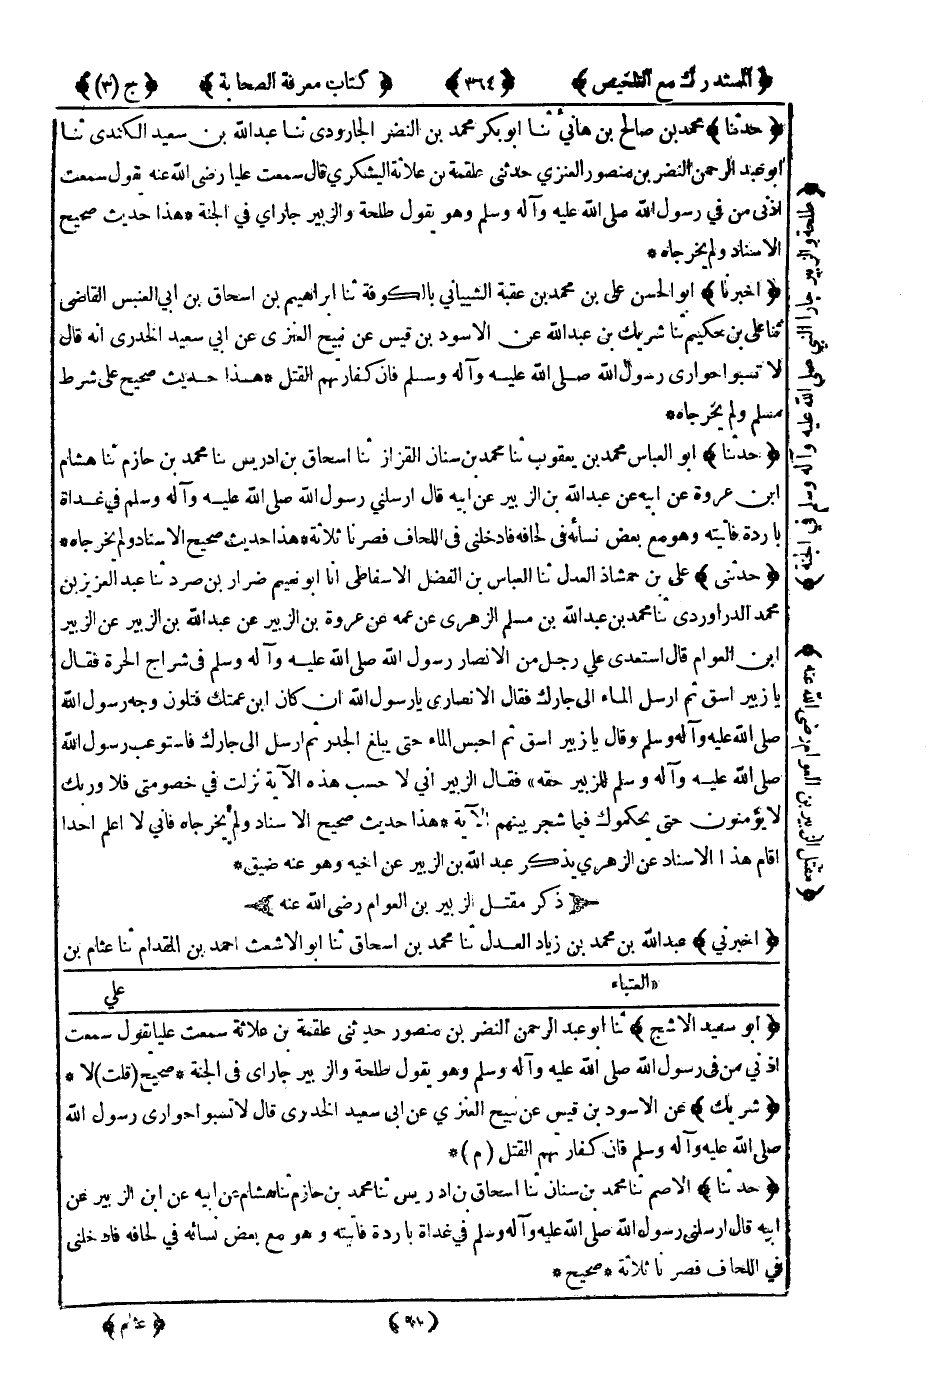 ﴿ المستدرك مع التلخيص ﴾ ﴿ ٣٦٤ ﴾ ﴿ كتاب معرفة الصحابة ﴾ ﴿ ج (٣) ﴾
﴿ حدثنا ﴾ محمد بن صالح بن هانئ ثنا ابو بكر محمد بن النضر الجارودى ثنا عبد الله بن سعيد الكندى ثنا
ابو عبد الرحمن النضر بن منصور العنزي حدثنى علقمة بن علاثة اليشكري قال سمعت عليا رضى الله عنه يقول سمعت
اذنى من في رسول الله صلى الله عليه وآله وسلم وهو يقول طلحة والزبير جاراي في الجنة * هذا حديث صحيح
الاسناد ولم يخرجاه *
﴿ اخبرنا ﴾ ابو الحسن على بن محمد بن عقبة الشيباني بالكوفة ثنا ابراهيم بن اسحاق بن ابي العنبس القاضى
ثنا على بن حكيم ثنا شريك بن عبد الله عن الاسود بن قيس عن نبيح العنزى عن ابي سعيد الخدرى انه قال
لا تسبوا حوارى رسول الله صلى الله عليه وآله وسلم فان كفارتهم القتل * هذا حديث صحيح على شرط
مسلم ولم يخرجاه *
﴿ حدثنا ﴾ ابو العباس محمد بن يعقوب ثنا محمد بن سنان القزاز ثنا اسحاق بن ادريس ثنا محمد بن حازم ثنا هشام
ابن عروة عن ابيه عن عبد الله بن الزبير عن ابيه قال ارسلني رسول الله صلى الله عليه وآله وسلم في غداة
باردة فأتيته وهو مع بعض نسائه في لحافه فادخلنى فى اللحاف فصرنا ثلاثة * هذا حديث صحيح الاسناد ولم يخرجاه *
﴿ حدثنى ﴾ على بن حمشاذ العدل ثنا العباس بن الفضل الاسفاطى انا ابو نعيم ضرار بن صرد ثنا عبد العزيز بن
محمد الدراوردى ثنا محمد بن عبد الله بن مسلم الزهرى عن عمه عن عروة بن الزبير عن عبد الله بن الزبير عن الزبير
ابن العوام قال استعدى علي رجل من الانصار رسول الله صلى الله عليه وآله وسلم فى شراج الحرة فقال
يا زبير اسق ثم ارسل الماء الى جارك فقال الانصارى يا رسول الله ان كان ابن عمتك فتلون وجه رسول الله
صلى الله عليه وآله وسلم وقال يا زبير اسق ثم احبس الماء حتى يبلغ الجدر ثم ارسل الى جارك فاستوعب رسول الله
صلى الله عليه وآله وسلم للزبير حقه» فقال الزبير اني لا حسب هذه الآية نزلت في خصومتى فلا وربك
لا يؤمنون حتى يحكموك فيما شجر بينهم الآية * هذا حديث صحيح الاسناد ولم يخرجاه فاني لا اعلم احدا
اقام هذا الاسناد عن الزهري يذكر عبد الله بن الزبير عن اخيه وهو عنه ضيق *
ذكر مقتل الزبير بن العوام رضى الله عنه
﴿ اخبرني ﴾ عبد الله بن محمد بن زياد العدل ثنا محمد بن اسحاق ثنا ابو الاشعث احمد بن المقدام ثنا عثام بن
علي
﴿ ابو سعيد الاشج ﴾ ثنا ابو عبد الرحمن النضر بن منصور حدثني علقمة بن علاثة سمعت عليا يقول سمعت
اذني من فى رسول الله صلى الله عليه وآله وسلم وهو يقول طلحة والزبير جاراى فى الجنة * صحيح (قلت) لا *
﴿ شريك ﴾ عن الاسود بن قيس عن نبيح العنزي عن ابى سعيد الخدرى قال لا تسبوا حوارى رسول الله
صلى الله عليه وآله وسلم فان كفارتهم القتل (م) *
﴿ حدثنا ﴾ الاصم ثنا محمد بن سنان ثنا اسحاق بن ادريس ثنا محمد بن حازم ثنا هشام عن ابيه عن ابن الزبير عن
ابيه قال ارسلنى رسول الله صلى الله عليه وآله وسلم في غداة باردة فأتيته وهو مع بعض نسائه في لحافه فادخلنى
في اللحاف فصرنا ثلاثة * صحيح *
﴿ عثام ﴾
﴿ طلحة والزبير جارا النبى صلى الله عليه وآله وسلم في الجنة ﴾
﴿ مقتل الزبير بن العوام رضى الله عنه ﴾